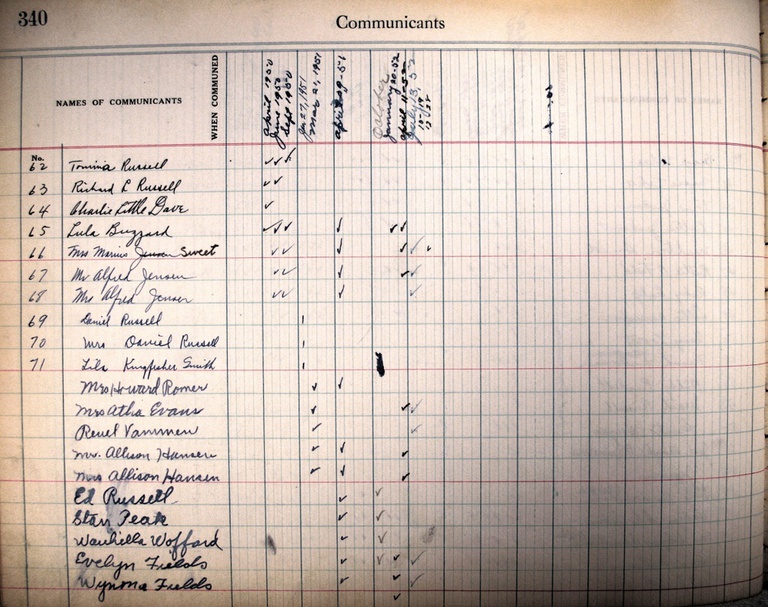 340
Communicants
NAMES OF COMMUNICANTS
WHEN COMMUNED
April 1950
June 1950
Sept 1950
Mar 21, 1951
April 29-51
October
January 20-52
April 11-52
July 13, 52
No.
62 Tomina Russell
63 Richard L Russell
64 Charlie Little Dave
65 Lula Buzzard
66 Mrs Marius Jensen Sweet
67 Mr Alfred Jensen
68 Mrs Alfred Jensen
69 Daniel Russell
70 Mrs Daniel Russell
71 Lila Kingfisher Smith
Mrs Howard Romer
Mrs Atha Evans
Reuel Vammen
Mr. Allison Hansen
Mrs Allison Hansen
Ed Russell
Starr Peak
Wofford
Evelyn Fields
Wynona Fields